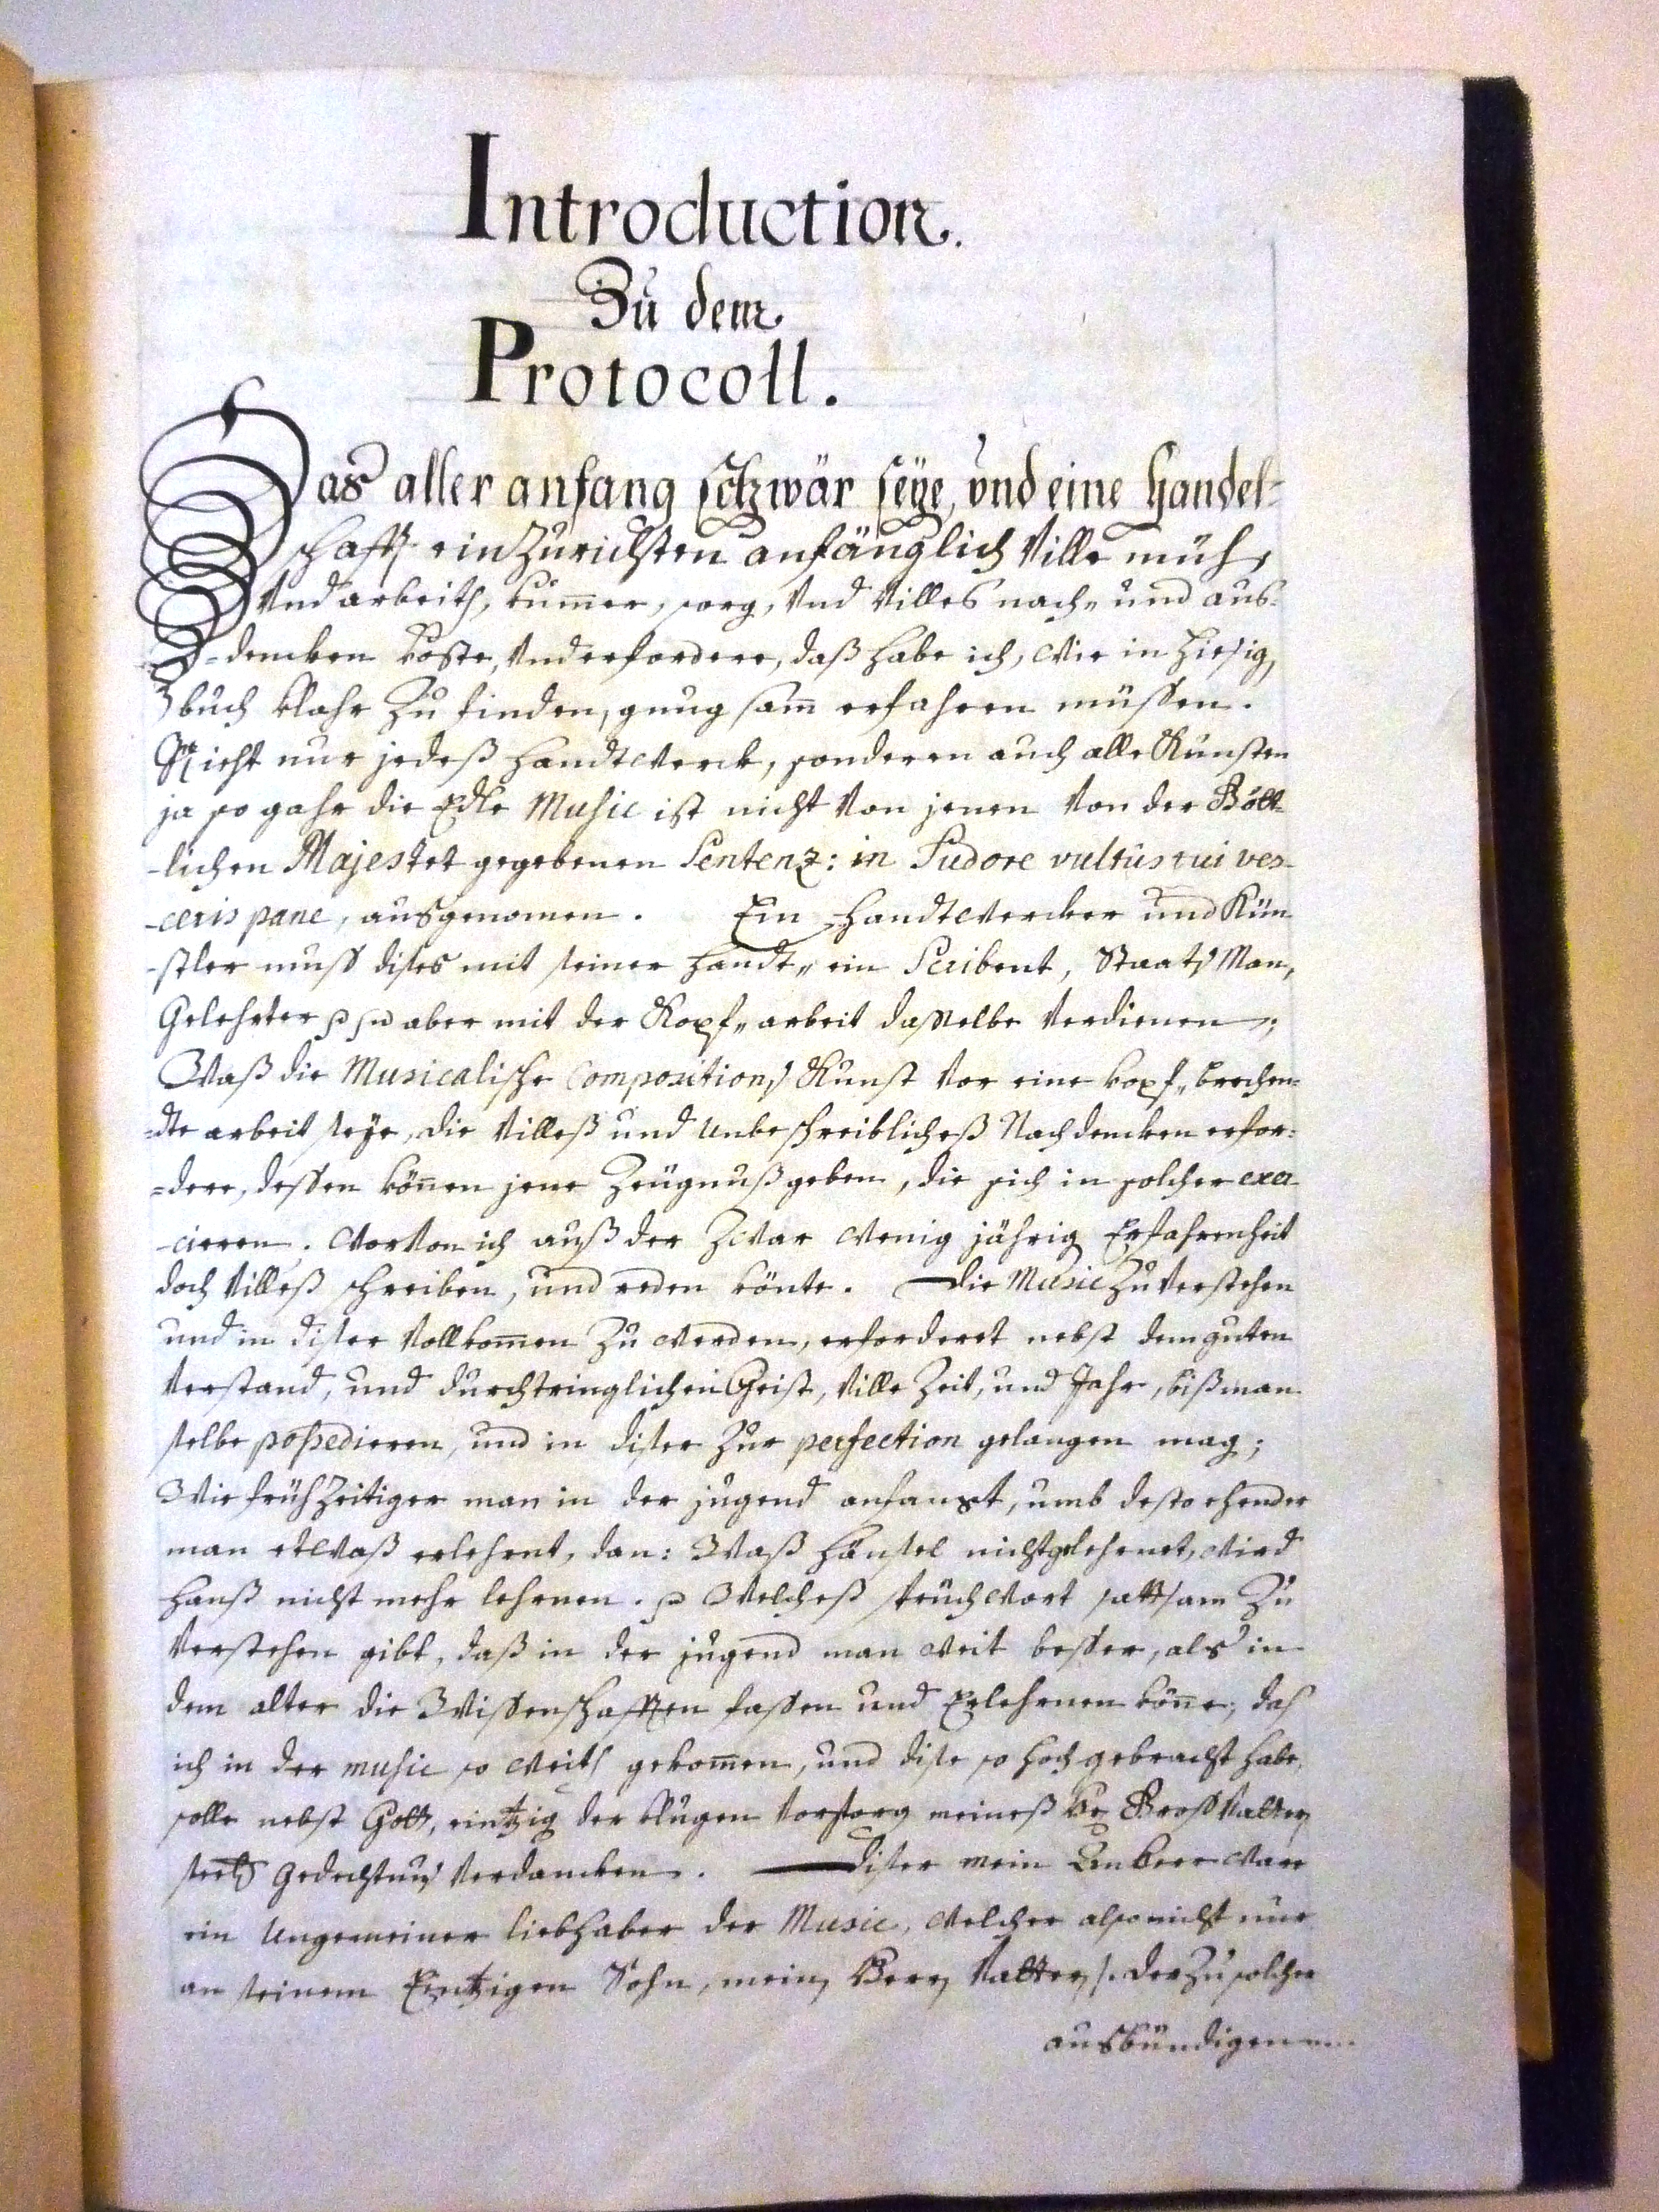 Introduction.
Zu dem
Protocoll.
Das aller anfang schwär seÿe, und eine Handel-
schafft einzurichten anfänglich ville müh,
und arbeith, kum̄er, sorg, und villes nach- und aus-
=dencken koste, und erfordere, daß habe ich, wie in hiesig,
buch klahr zu finden, gnug sam̄ erfahren müssen.
Nicht nur jedeß handtwerck, sonderen auch alle Künsten
ja so gahr die Edle Music ist nicht von jenen von der Gött-
-lichen Majestet gegebenen Sentenz: in Sudore vultûs tui ves-
-ceris pane, ausgenomen. Ein Handtwercker und Kün-
-stler muß dises mit seiner handt- ein Scribent, Staats Man,
Gelehrter aber mit der Kopf- arbeit dasselbe verdienen;
Waß die Musicalische Compositions Kunst vor eine kopf- brechen-
=dte arbeit seÿe, die villeß und unbeschreiblicheß Nachdencken erfor-
=dere, dessen kön̄en jene Zeügnuß geben, die sich in solcher exer-
-cieren. worvon ich auß der zwar wenig jährig Erfahrenheit
doch villeß schreiben, und reden könte. Die Music zu verstehen
und in diser vollkom̄en zu werden, erforderet nebst dem guten
verstand, und durchtringlichen Geist, ville Zeit, und Jahr, biß man
selbe poßedieren, und in diser zur perfection gelangen mag;
Wie frühzeitiger man in der jugend anfangt, umb desto ehender
man etwaß erlehrnt, dan: Waß Hänsel nicht gelehrnet, wird
Hanß nicht mehr lehrnen. Welcheß sprüchwort sattsam zu
verstehen gibt, daß in der jugend man weit besser, als in
dem alter die Wissenschafften fassen und Erlehrnen kön̄e, daß
ich in der music so weith gekom̄en, und dise so hoch gebracht habe,
solle nebst Gott, eintzig der klugen vorsorg meineß H. Großvatters
seel. gedechtnus verdancken. Diser mein Anherr ware
ein ungemeiner liebhaber der Music, welcher also nicht nur
an seinem Eintzigen Sohn, mein, Herr, Vatter, /: der zu solcher
ausbündigen